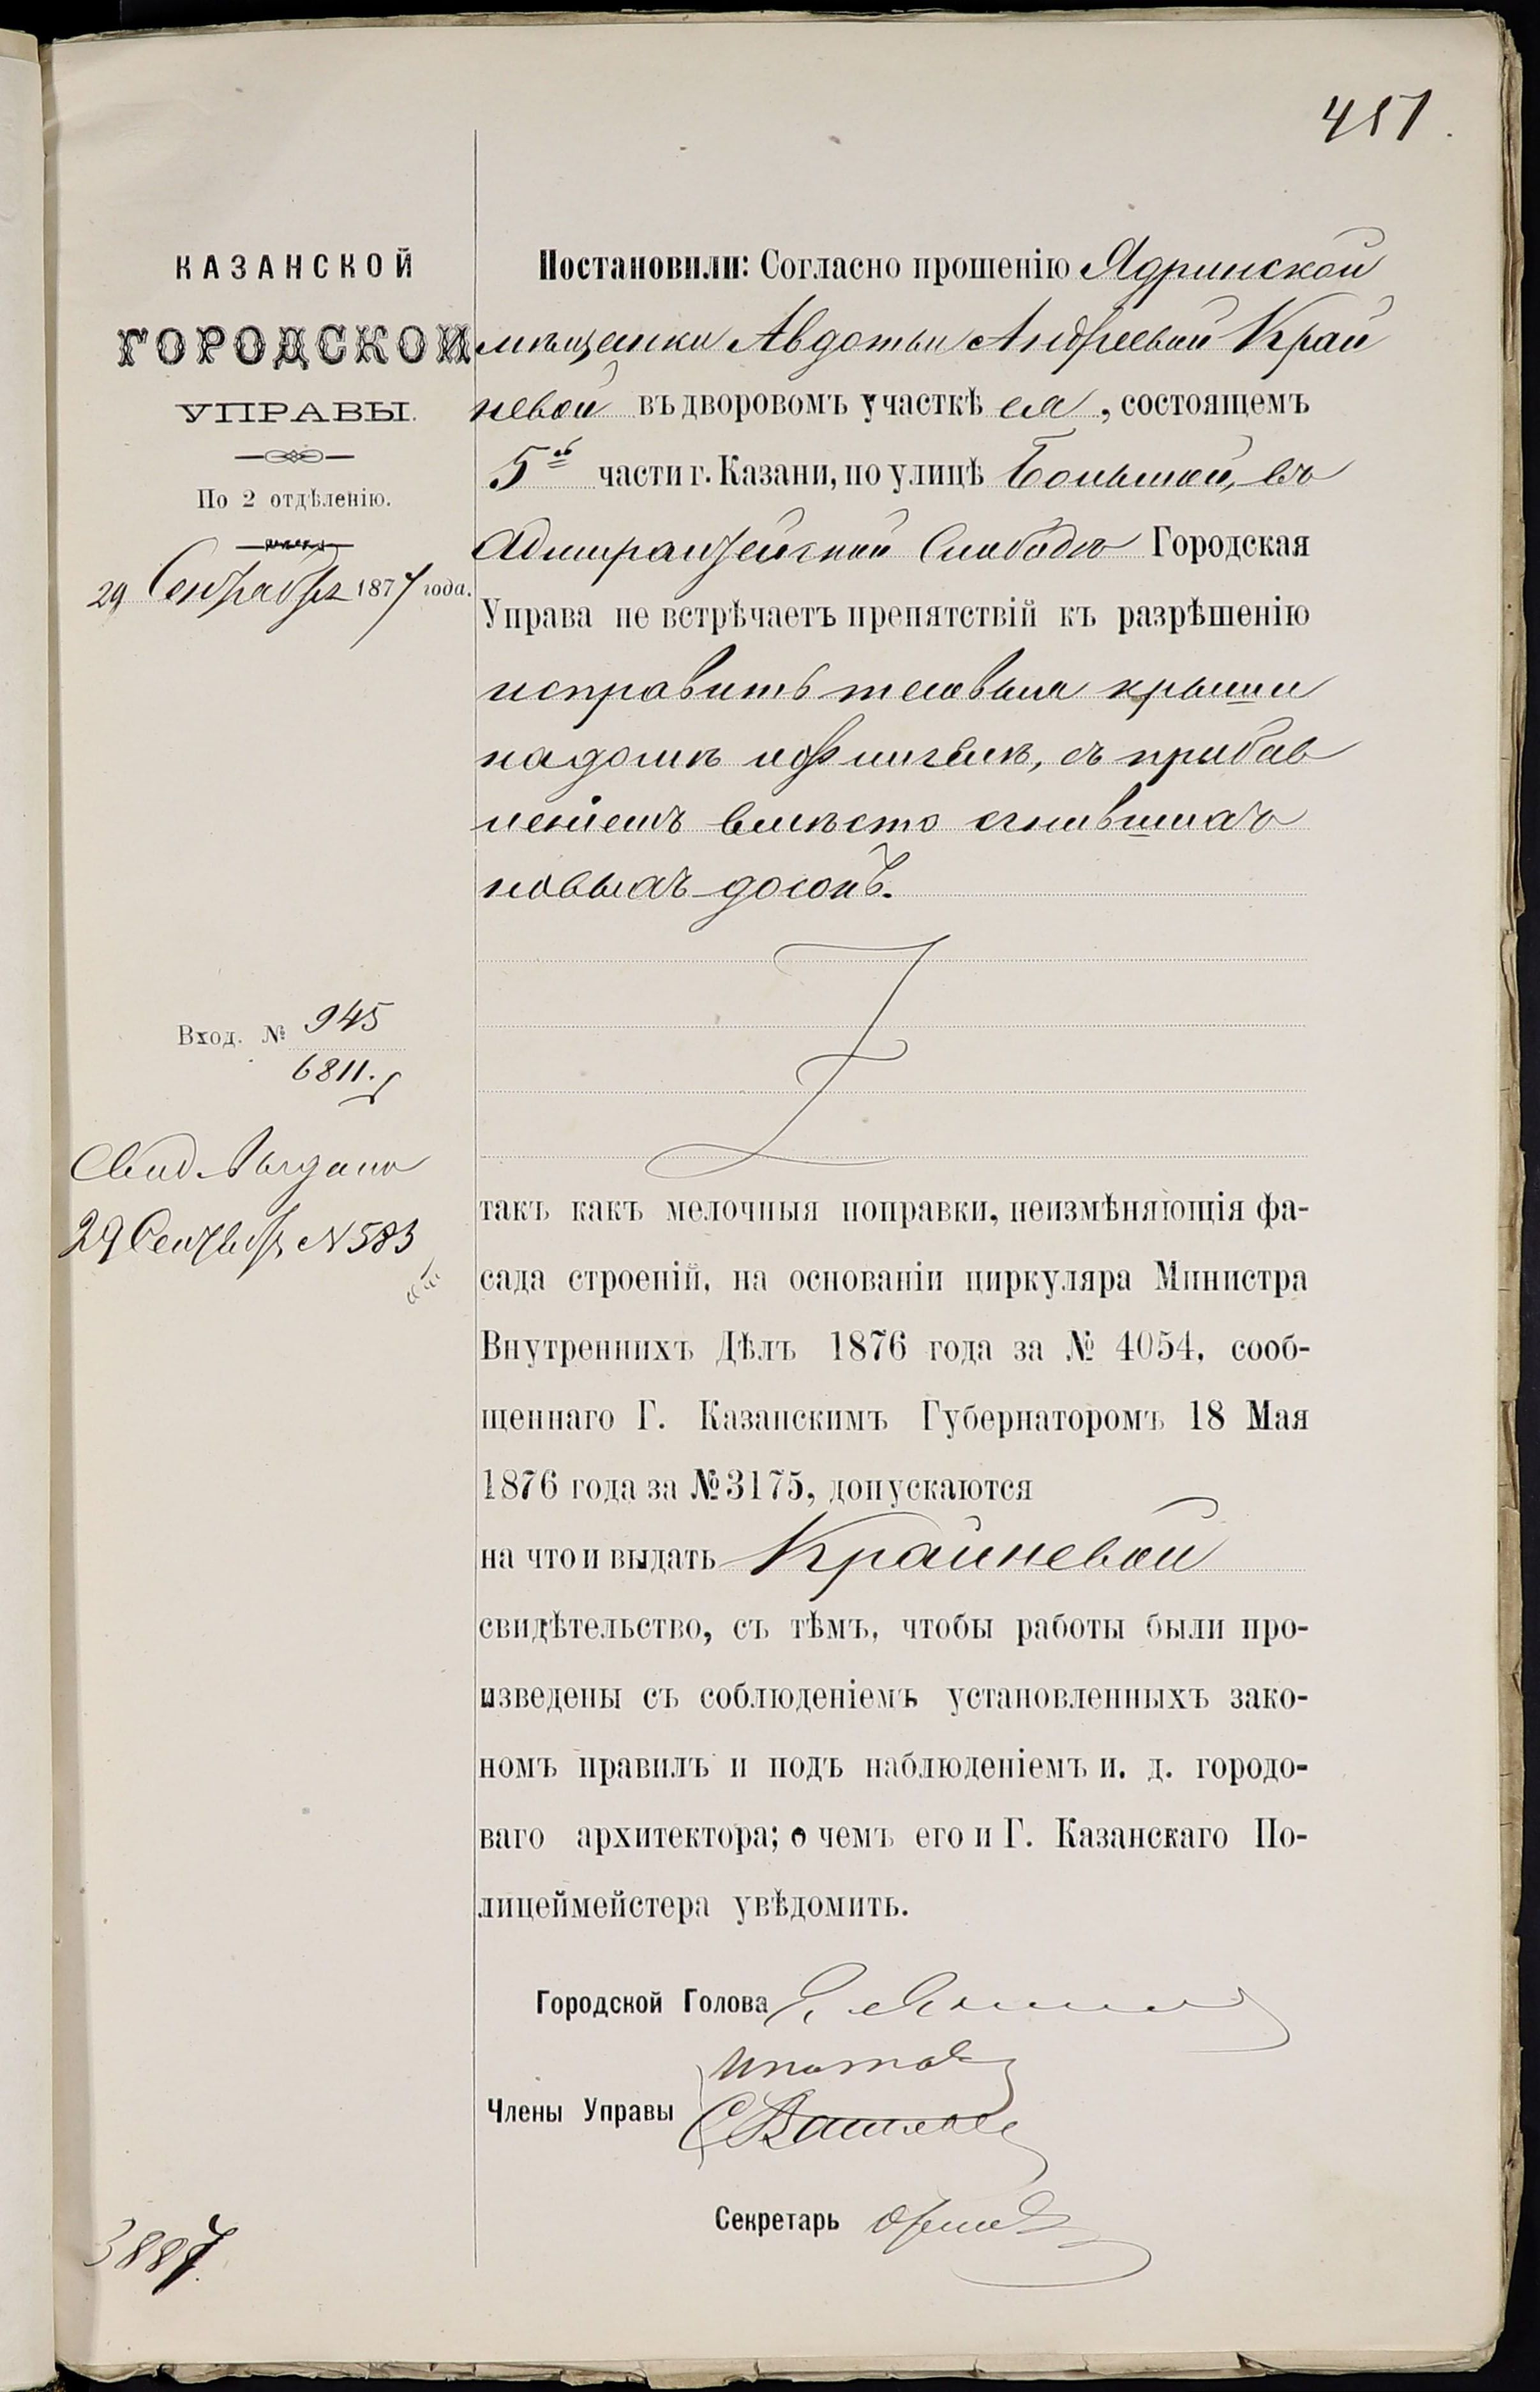 451.
КАЗАНСКОЙ
ГОРОДСКОЙ
УПРАВЫ.
По 2 отдѣленію.
29 Сентября 1877 года.
Вход. № 945
6811.
Свид. Выдано
29 Сентября № 583
3887.
Постановили: Согласно прошенію Ядринской
мѣщанки Авдотьи Андреевой Край
невой въ дворовомъ участкѣ ея, состоящемъ
5й части г. Казани, по улицѣ Большой, въ
Адмиралтейской Слободѣ Городская
Управа не встрѣчаетъ препятствій къ разрѣшенію
исправить тесовыя крыши
на домѣ и флигелѣ, съ прибав
леніемъ вмѣсто сгнившихъ
новыхъ досокъ.
такъ какъ мелочныя поправки, неизмѣняющія фа-
сада строеній, на основаніи циркуляра Министра
Внутреннихъ Дѣлъ 1876 года за № 4054, сооб-
щеннаго Г. Казанскимъ Губернаторомъ 18 Мая
1876 года за № 3175, допускаются
на что и выдать Крайневой
свидѣтельство, съ тѣмъ, чтобы работы были про-
изведены съ соблюденіемъ установленныхъ зако-
номъ правилъ и подъ наблюденіемъ и. д. городо-
ваго архитектора; о чемъ его и Г. Казанскаго По-
лицеймейстера увѣдомить.
Городской Голова
Члены Управы
Секретарь